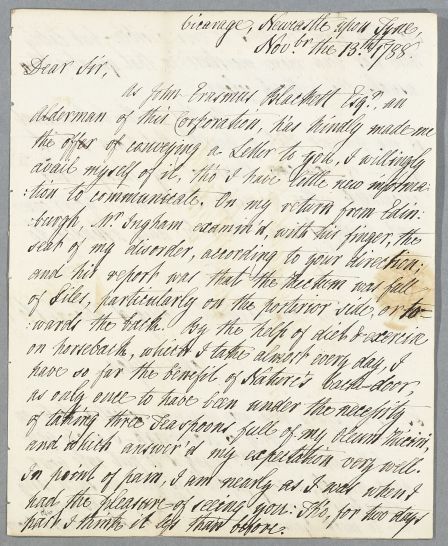 Vicarage, Newcastle upon Tyne,
Nov.br the 13.th 1788.
Dear Sir,
As John Erasmus Blackett Esq.r, an
Alderman of this Corporation, has kindly made me
the offer of conveying a Letter to you, I willingly
avail myself of it, tho' I have little new informa-
:tion to communicate. On my return from Edin:
:burgh, Mr. Ingham examin'd, with his finger, the
seat of my disorder, according to your direction;
and his report was that the Rectum was full
of Piles, particularly on the posterior side, or to-
:wards the back. By the help of diet & exercise
on horseback, which I take almost every day, I
have so far the benefit of Nature's back-door,
as only once to have been under the necessity
of taking three Teaspoons full of my Oleum Ricini,
and which answer'd my expectation very well.
In point of pain, I am nearly as I was when I
had the pleasure of seeing you: Tho, for two days
past I think it less than before.